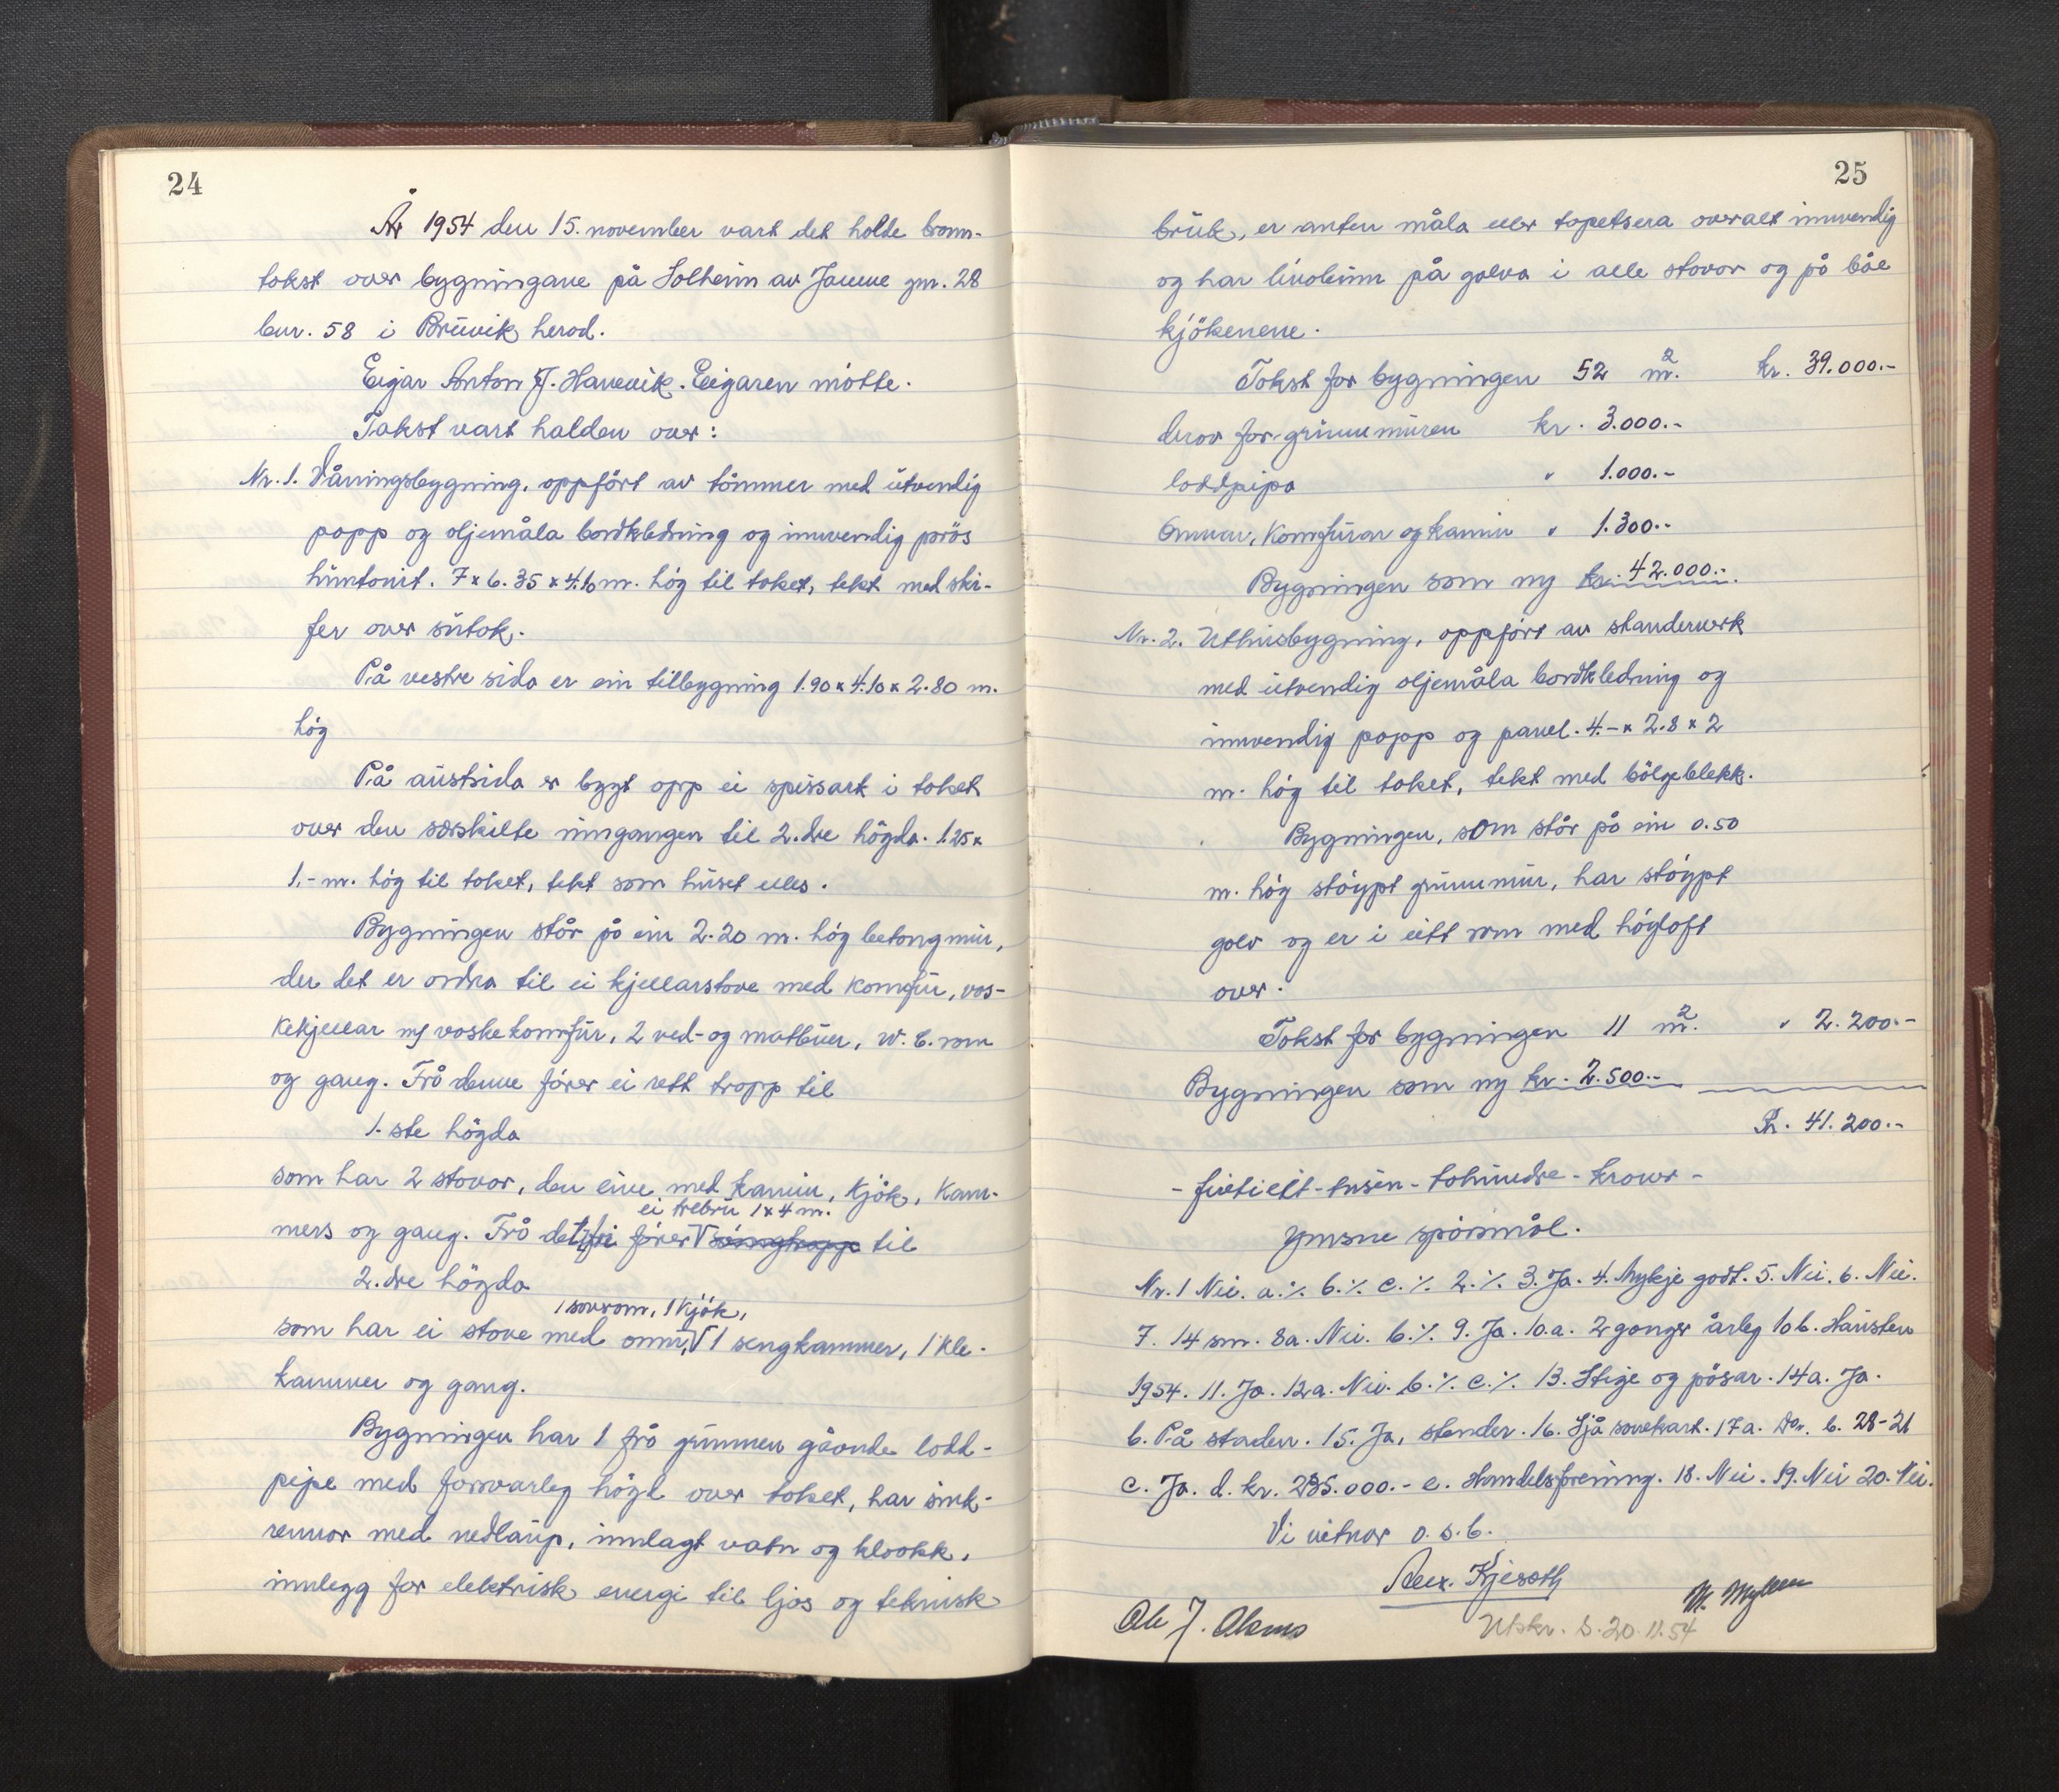 24
År 1954 den 15. november vart det holde brann-
takst over bygningane på Solheim av Janne gnr. 28
bnr. 58 i Bruvik herad.
Eigar Anton J. Hanevik. Eigaren møtte.
Takst vart halden over:
Nr. 1. Våningsbygning, oppført av tømmer med utvendig
papp og oljemåla bordkledning og innvendig porøs
huntonit. 7 x 6.35 x 4.10 m. høg til taket, tekt med ski-
fer over sutak.
På vestre sida er ein tilbygning 1.90 x 4.10 x 2.80 m.
høg
På austsida er bygt opp ei spissark i taket
over den særskilte inngangen til 2.dre høgda. 1.25 x
1.- m. høg til taket, tekt som huset elles.
Bygningen står på ein 2.20 m. høg betongmur,
der det er ordna til ei kjellarstove med komfur, vas-
kekjellar m/ vaskekomfur, 2 ved- og matbuer, W.C. rom
og gang. Frå denne fører ei rett tropp til
1.ste høgda
som har 2 stover, den eine med kamin, kjøk, kam-
ei trebru 1 x 4 m.
mers og gang. Frå det fri fører svingtropp til
2.dre høgda
1 soverom, 1 kjøk,
som har ei stove med omn, 1 sengkammer, 1 kle-
kammer og gang.
Bygningen har 1 frå grunnen gåande lodd-
pipe med forsvarleg høgd over taket, har sink-
rennor med nedlaup, innlagt vatn og kloakk,
innlegg for elektrisk energi til ljos og teknisk
25
bruk, er anten måla eller tapetsera overalt innvendig
og har linoleum på golva i alle stovor og på båe
kjøkenene.
Takst for bygningen 52 m². kr. 39.000.-
derav for grunnmuren kr. 3.000.-
loddpipa " 1.000.-
Omnar, komfurar og kamin " 1.300.-
Bygningen som ny kr. 42.000.-
Nr. 2. Uthusbygning, oppført av standerverk
med utvendig oljemåla bordkledning og
innvendig papp og panel. 4.- x 2.8 x 2
m. høg til taket, tekt med bølgeblekk.
Bygningen, som står på ein 0.50
m. høg støypt grunnmur, har støypt
golv og er i eitt rom med høgloft
over.
Takst for bygningen 11 m². " 2.200.-
Bygningen som ny kr. 2.500.-
Kr. 41.200.-
- førtieitt-tusen-tohundre-kroner -
Ymsne spørsmål.
Nr. 1 Nei. a. ٪ b. ٪ c. ٪ 2. ٪ 3. Ja. 4. Mykje godt. 5. Nei. 6. Nei.
7. 14 sm. 8a. Nei. b. ٪ 9. Ja. 10.a. 2 gonger årleg 10 b. Hausten
1954. 11. Ja. 12a. Nei. b. ٪ c. ٪ 13. Stige og pøsar. 14a. Ja.
b. På staden. 15. Ja, stender. 16. Sjå sonekart. 17a. Do. b. 28-21
c. Ja. d. kr. 235.000.- e. Handelsforening. 18. Nei. 19. Nei 20. Nei.
Vi vitnar o.s.b.
Alex. Kjesseth
M. Myhren
Ole J. Olsnes
Utskr. S. 20.11.54